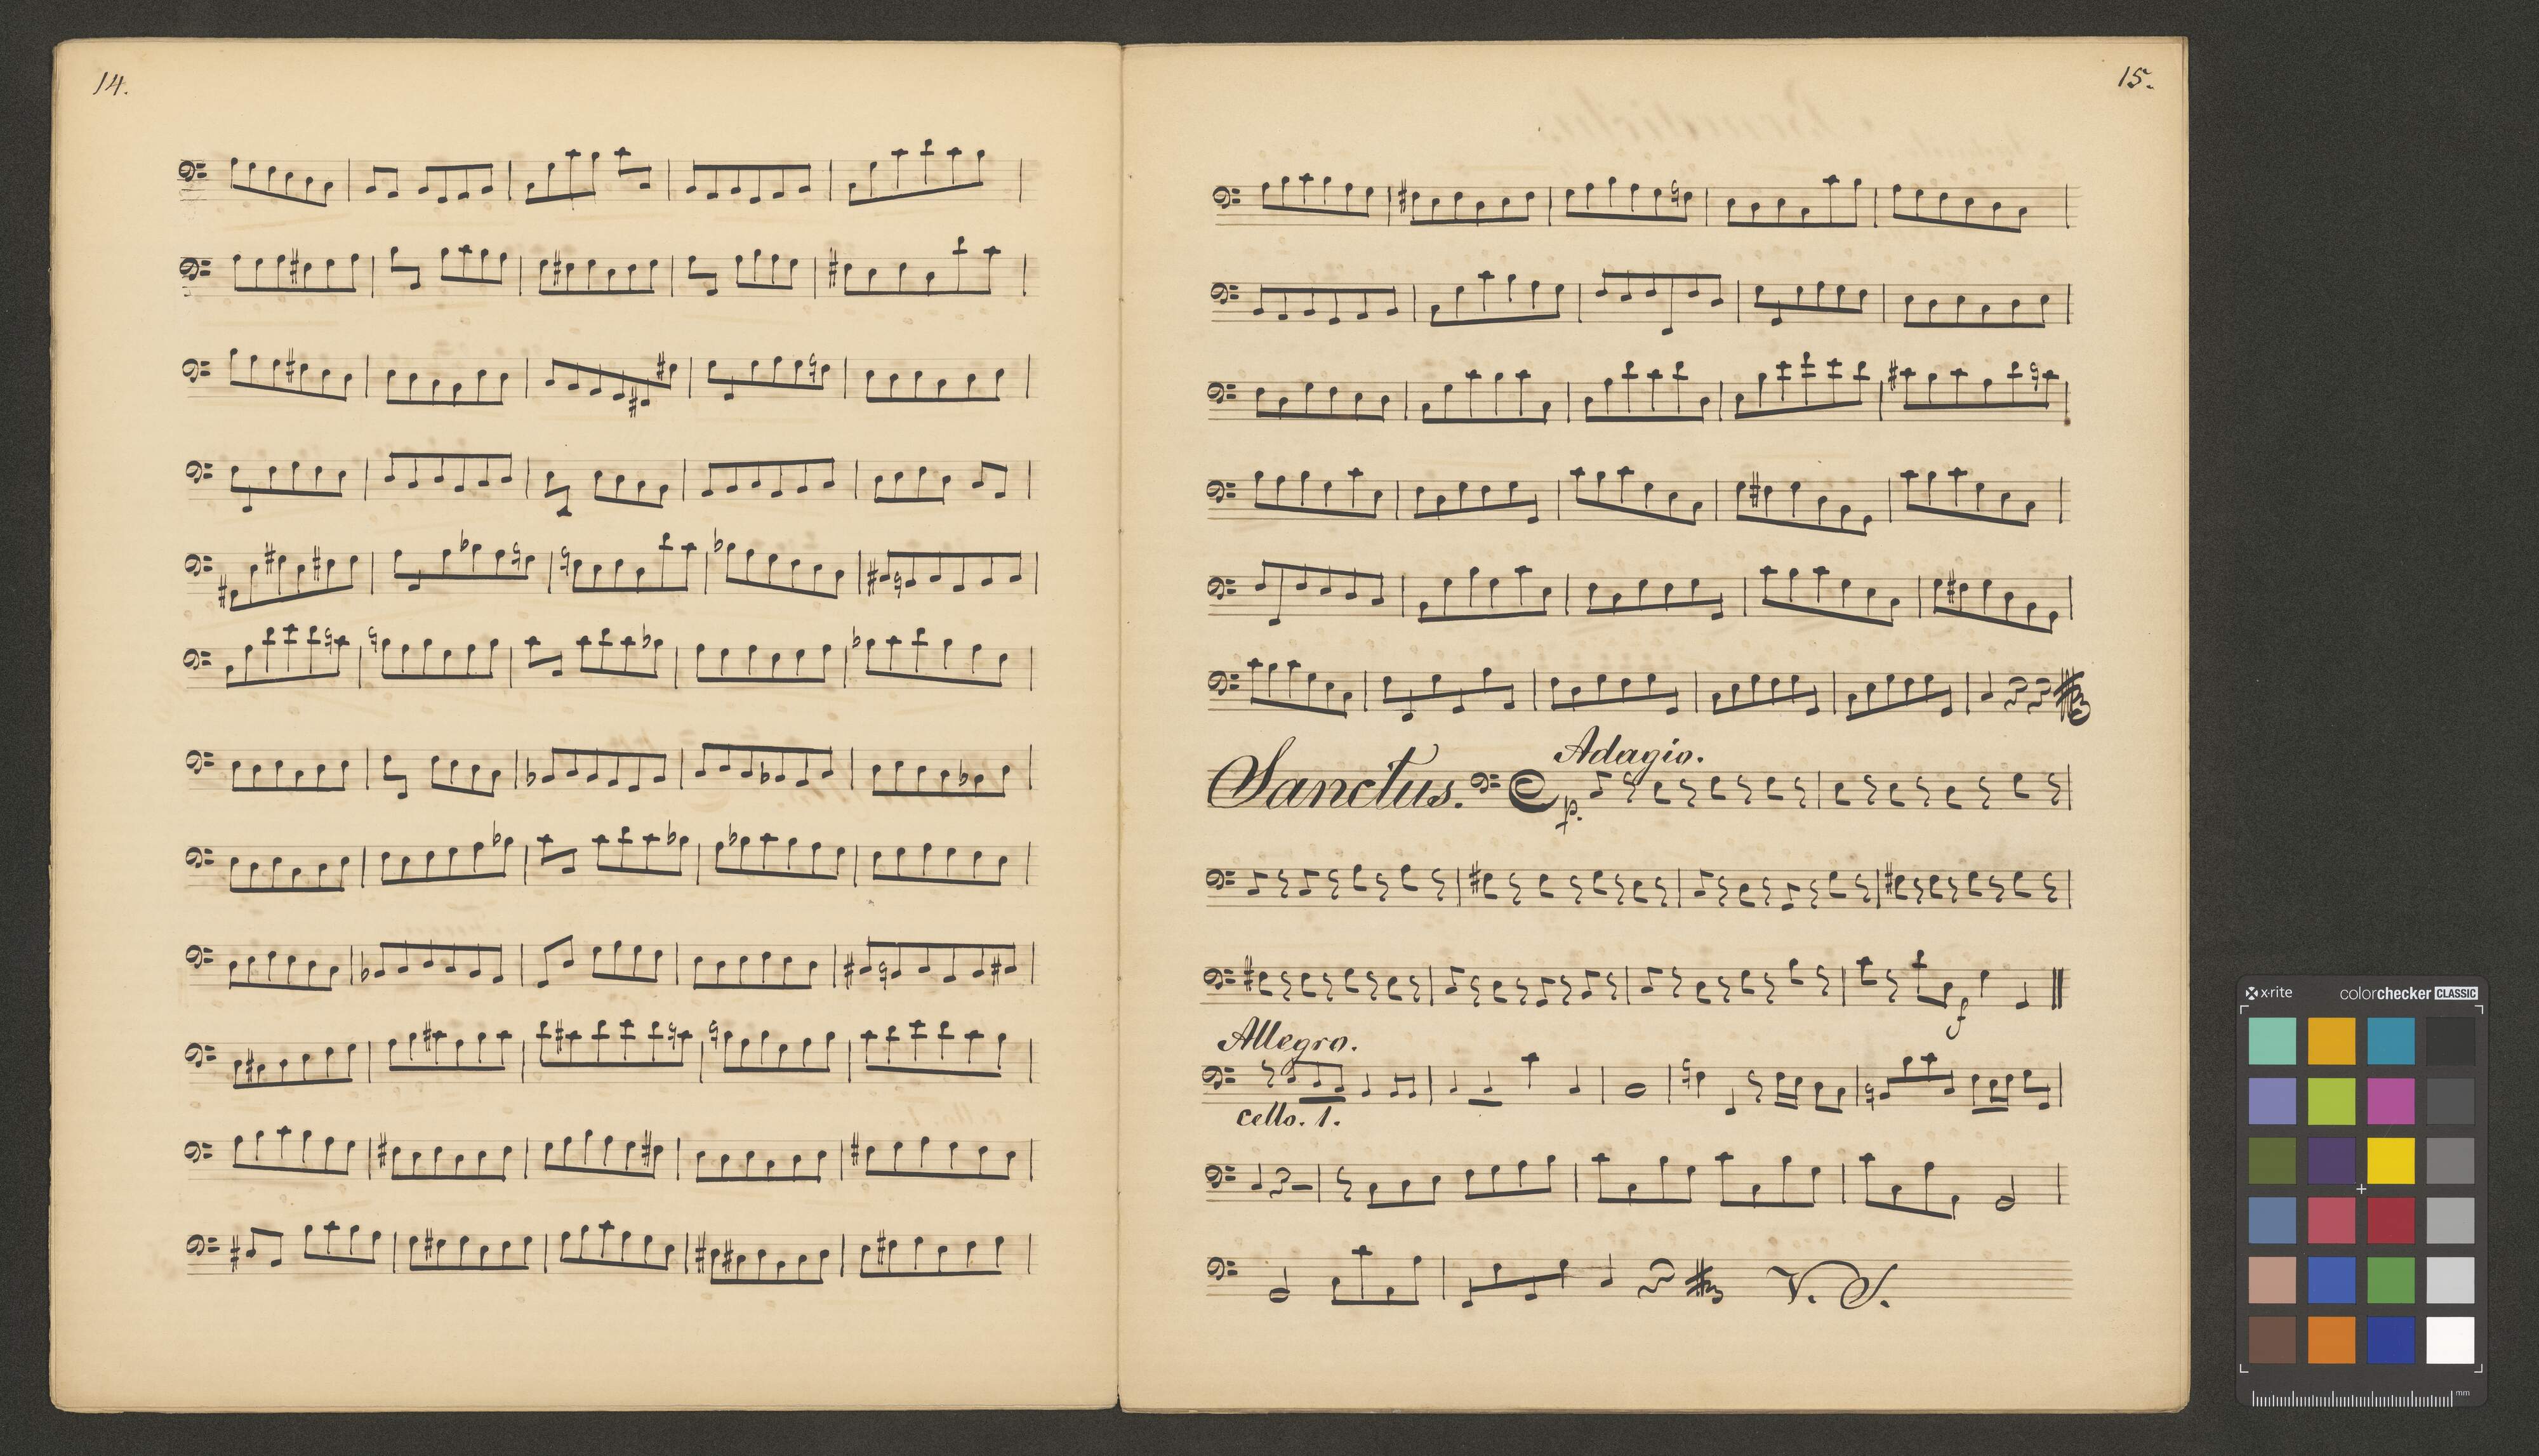 14.
15.
Adagio.
Sanctus.
p.
f
Allegro.
cello. 1.
V. S.
x-rite
colorchecker CLASSIC
mm